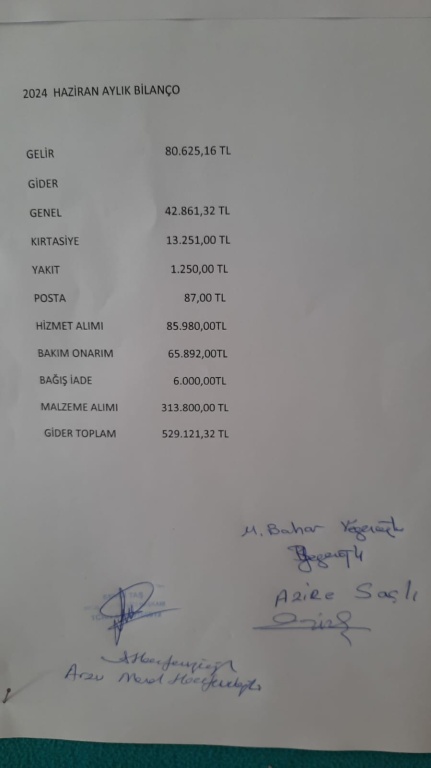 2024 HAZİRAN AYLIK BİLANÇO
GELİR 80.625,16 TL
GİDER
GENEL 42.861,32 TL
KIRTASİYE 13.251,00 TL
YAKIT 1.250,00 TL
POSTA 87,00 TL
HİZMET ALIMI 85.980,00TL
BAKIM ONARIM 65.892,00TL
BAĞIŞ İADE 6.000,00TL
MALZEME ALIMI 313.800,00 TL
GİDER TOPLAM 529.121,32 TL
M. Bahar
Azize Saçlı
Arzu